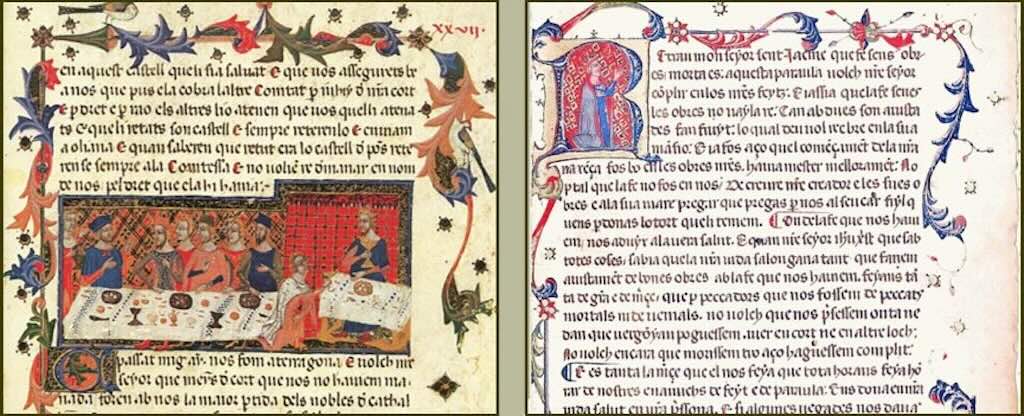 xxvij.
en aquest castell queli sia saluat E que nos assegurets be
a nos que pus ela cobra laltre Comtat p iuhy d nra cort
e p dret e p rao els altres lio atenen que nos quelli atena
ts e queli retats son castell E sempre reterenlo e enuiam
a oliana E quan saberen que retut era lo castell d pos rete
rense sempre ala Comtessa E no uolie romanar en nom
de nos pel dret que ela hi hauia:
E passat mig ay. nos fom a terragona E uolch nre
seyor que meys d cort que nos no hauiem ma
nada foren ab nos la maior ptida dels nobles d cathal
Retrau mon seyor sent Jacme que fe sens obr
es morta es: aquesta paraula uolch nre seyor
coplir en los nres feyts: E ia ssia que la fe sene
les obres no nayla re: Can abdues son aiusta
des fan fruyt: lo qual deu uol reebre en la sua
masio: E ia fos aço quel començamet dela nra
naxeça fos bo en les obres nres. hauia mester melloramet: No
p tal que la fe no fos en nos: De creure nre creador e les sues o
bres e ala sua mare pregar que pregas p nos al seu car fiyl q
uens pdonas lo tort queli teniem. On dela fe que nos haui
em, nos aduyx ala uera salut. E quan nre seyor ihu xst que sab
totes coses, sabia quela nra uida salongaria tant que fariem
aiustamet de bones obres ab la fe que nos hauiem. feyanis ta
ta de gra e de mce, que p peccadors que nos fossem de peccatz
mortals ni de uenials, no uolch que nos psessem onta ne
dan que uergoyan poguessem. auer en cort ne en altre loch:
No uolch encara que morissem tro aço haguessem complit.
E es tanta la mce que el nos feya que tota hora ns feya ho
rar de nostres enamichs de feyt e de paraula: Eus dona en nra
uida salut en nra pssona. E si algunes uegades nos daua